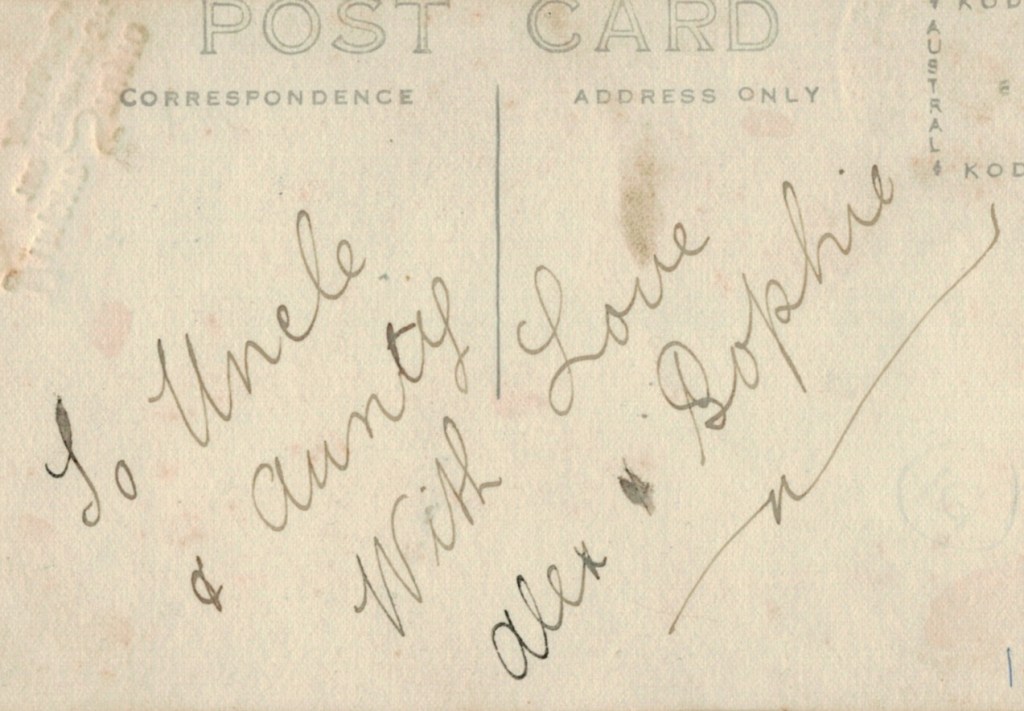 POST CARD
CORRESPONDENCE
ADDRESS ONLY
AUSTRAL
KOD
KOD
To Uncle
& aunty
With Love
alex & Sophie